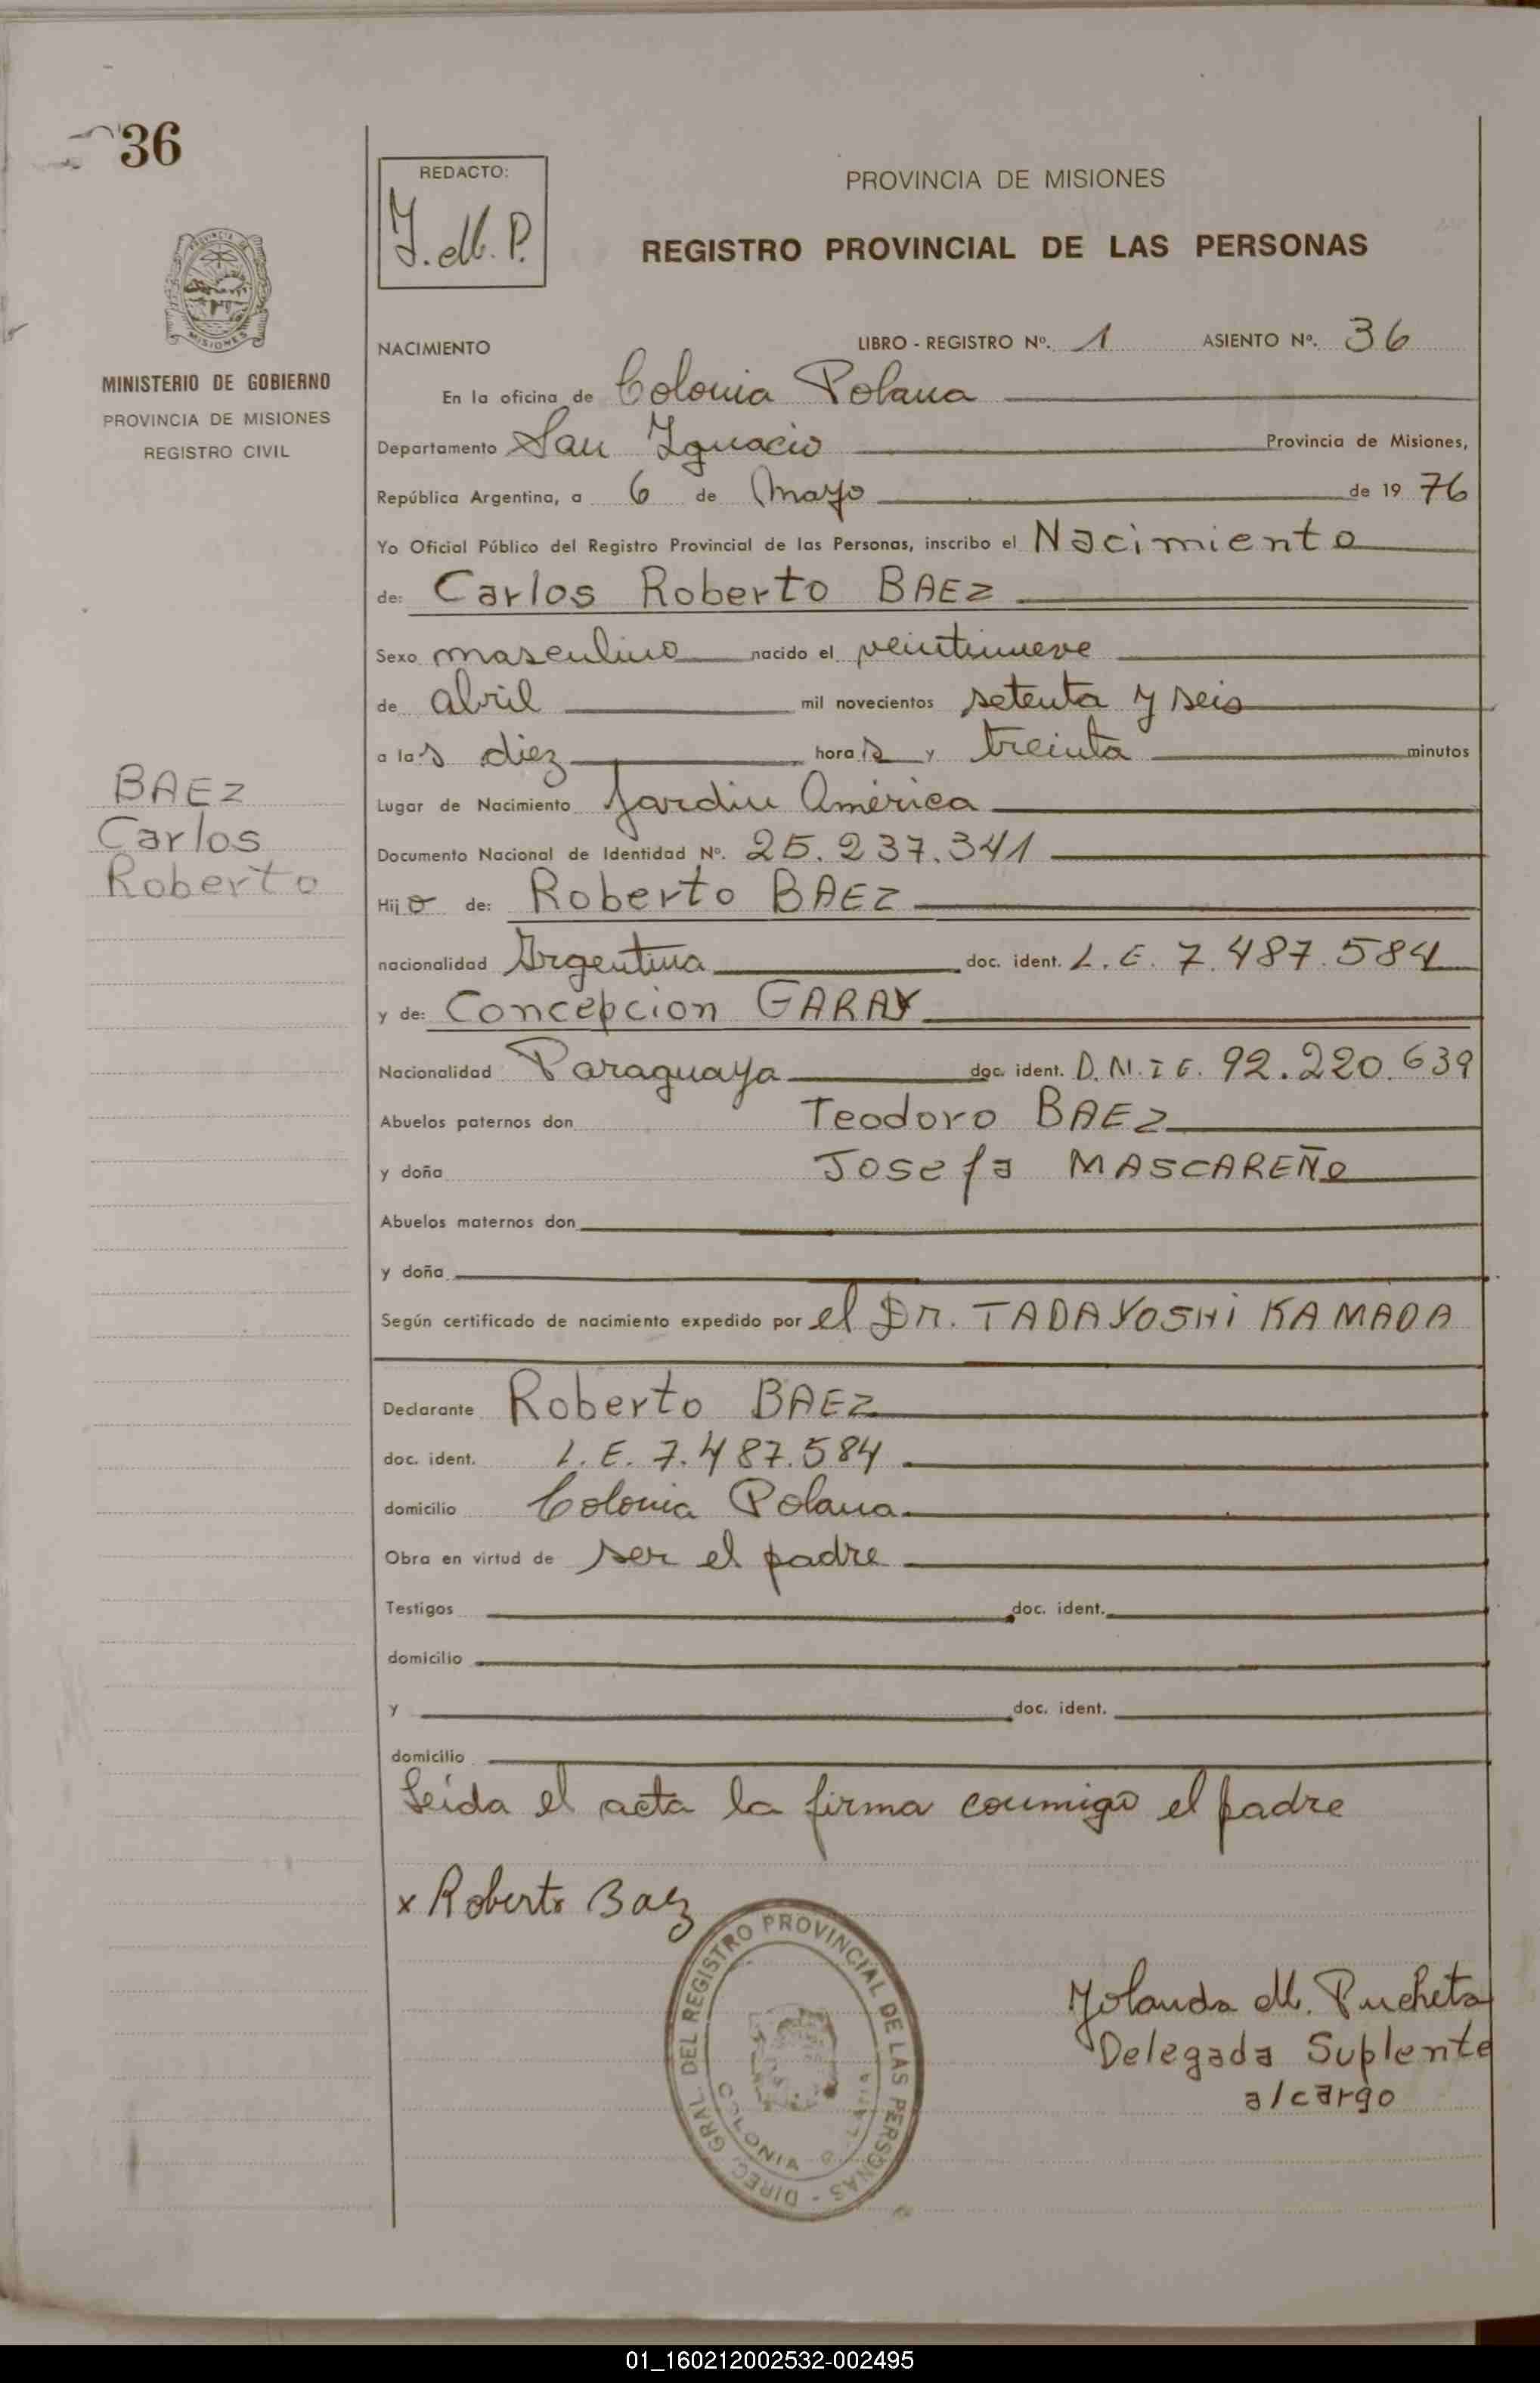 36
REDACTO:
Y. M. P.
PROVINCIA DE MISIONES
REGISTRO PROVINCIAL DE LAS PERSONAS
PROVINCIA DE
MISIONES
MINISTERIO DE GOBIERNO
PROVINCIA DE MISIONES
REGISTRO CIVIL
NACIMIENTO LIBRO - REGISTRO Nº. 1 ASIENTO Nº. 36
En la oficina de Colonia Polana
Departamento San Ignacio Provincia de Misiones,
República Argentina, a 6 de Mayo de 19 76
Yo Oficial Público del Registro Provincial de las Personas, inscribo el Nacimiento
de: Carlos Roberto BAEZ
Sexo masculino nacido el veintinueve
de abril mil novecientos setenta y seis
a las diez horas y treinta minutos
BAEZ
Carlos
Roberto
Lugar de Nacimiento Jardin América
Documento Nacional de Identidad Nº. 25.237.341
Hijo de: Roberto BAEZ
nacionalidad Argentina doc. ident. L. E. 7.487.584
y de: Concepcion GARAY
Nacionalidad Paraguaya doc. ident. D.N.I E. 92.220.639
Abuelos paternos don Teodoro BAEZ
y doña Josefa MASCAREÑO
Abuelos maternos don
y doña
Según certificado de nacimiento expedido por el Dr. TADAYOSHI KAMADA
Declarante Roberto BAEZ
doc. ident. L. E. 7.487.584
domicilio Colonia Polana
Obra en virtud de ser el padre
Testigos doc. ident.
domicilio
y doc. ident.
domicilio
Leída el acta la firma conmigo el padre
x Roberto Baez
DIREC. GRAL. DEL REGISTRO PROVINCIAL DE LAS PERSONAS -
COLONIA
Yolanda M. Pucheta
Delegada Suplente
a/cargo
01_160212002532-002495